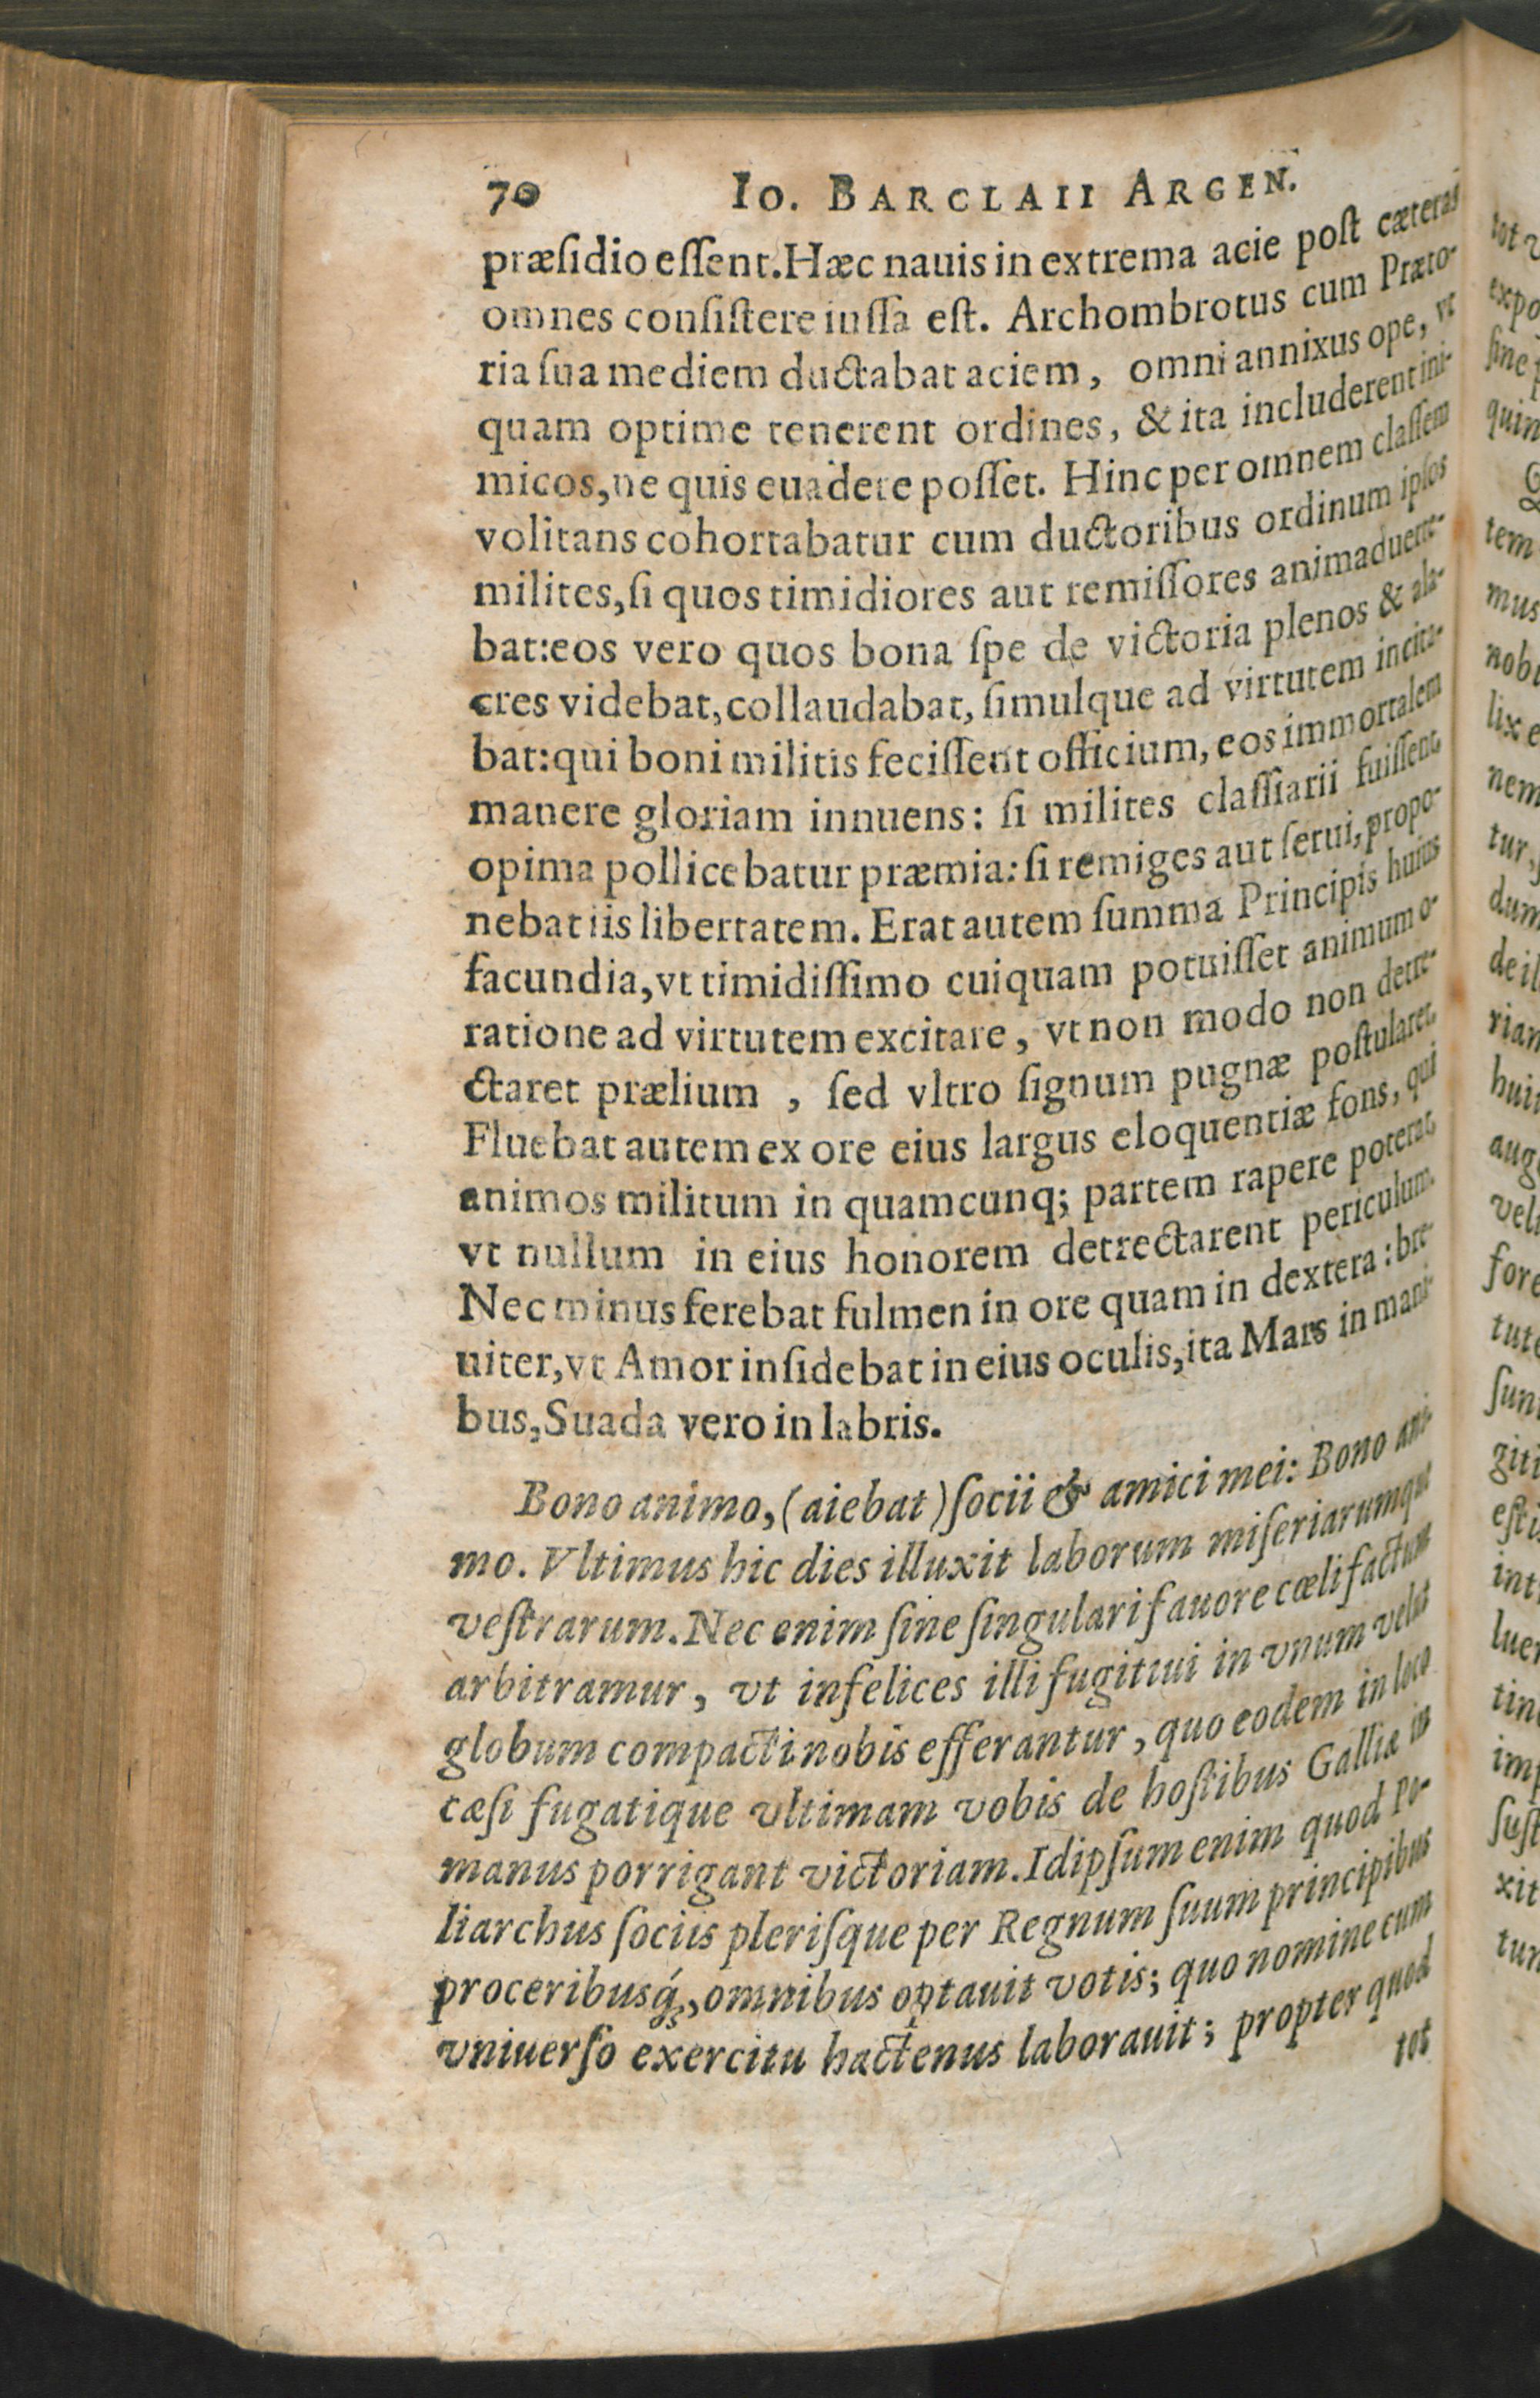 70 Io. BARCLAII ARGEN.
præſidio eſſent. Hæc nauis in extrema acie poſt cæteras
omnes conſiſtere iuſſa eſt. Archombrotus cum Præto-
ria ſua mediem ductabat aciem, omni annixus ope, vt
quam optime tenerent ordines, & ita includerent ini-
micos, ne quis euadere poſſet. Hinc per omnem claſſem
volitans cohortabatur cum ductoribus ordinum ipſos
milites, ſi quos timidiores aut remiſſores animaduerte-
bat: eos vero quos bona ſpe de victoria plenos & ala-
cres videbat, collaudabat, ſimulque ad virtutem incita-
bat: qui boni militis feciſſent officium, eos immortalem
manere gloriam innuens: ſi milites claſſiarii fuiſſent,
opima pollicebatur præmia: ſi remiges aut ſerui, propo-
nebat iis libertatem. Erat autem ſumma Principis huius
facundia, vt timidiſſimo cuiquam potuiſſet animum o-
ratione ad virtutem excitare, vt non modo non detre-
ctaret prælium , ſed vltro ſignum pugnæ poſtularet.
Fluebat autem ex ore eius largus eloquentiæ fons, qui
animos militum in quamcunq; partem rapere poterat,
vt nullum in eius honorem detrectarent periculum.
Nec minus ferebat fulmen in ore quam in dextera: bre-
uiter, vt Amor inſidebat in eius oculis, ita Mars in mani-
bus, Suada vero in labris.
Bono animo, (aiebat) ſocii & amici mei: Bono ani-
mo. Vltimus hic dies illuxit laborum miſeriarumque
veſtrarum. Nec enim ſine ſingulari fauore cæli factum
arbitramur, vt infelices illi fugitiui in vnum velut
globum compacti nobis efferantur, quo eodem in loco
cæſi fugatique vltimam vobis de hoſtibus Galliæ in
manus porrigant victoriam. Idipſum enim quod Po-
liarchus ſociis pleriſque per Regnum ſuum principibus
proceribusq́;, omnibus optauit votis; quo nomine cum
vniuerſo exercitu hactenus laborauit; propter quod
tot
expo
quin
tem
mus
nobi
lix e
nem
tur,
dum
de il
rian
hui
aug
vel
fore
tut
ſun
giti
int
tin
imp
ſuſt
xit
tur